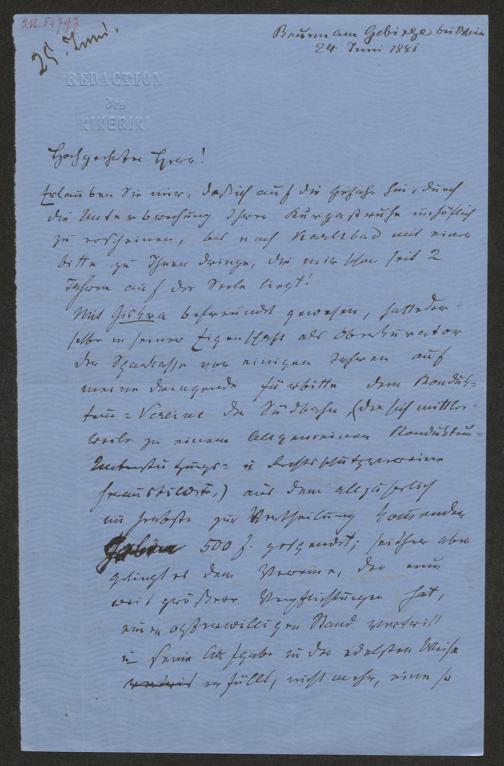 I.N. 54797
25. Juni.
Brunn am Gebirge bei Wien
24 Juni 1881
REDACTION
des
KIKERIKI
Hochgeehrter Herr!
Erlauben Sie mir, daß ich auf die Gefahr hin, durch
die Unterbrechung Ihrer Kurgastruhe unhöflich
zu erscheinen, bis nach Karlsbad mit einer
Bitte zu Ihnen dringe, die mir schon seit 2
Jahren auf der Seele liegt!
Mit Giskra befreundet gewesen, hatte der-
selbe in seiner Eigenschaft als Oberkurator
der Sparkasse vor einigen Jahren auf
meine dringende Fürbitte dem Konduk-
teur-Vereine der Südbahn (der sich mittler-
weile zu einem Allgemeinen Kondukteur-
Unterstützungs- u Rechtsschutzvereine
herausbildete,) aus dem alljährlich
im Herbste zur Vertheilung kommenden
500 f. gespendet; seither aber
gelingt es dem Vereine, der nun
weit größere Verpflichtungen hat,
einen opferwilligen Stand vertritt
u seine Aufgabe in der edelsten Weise
erfüllt, nicht mehr, eine so